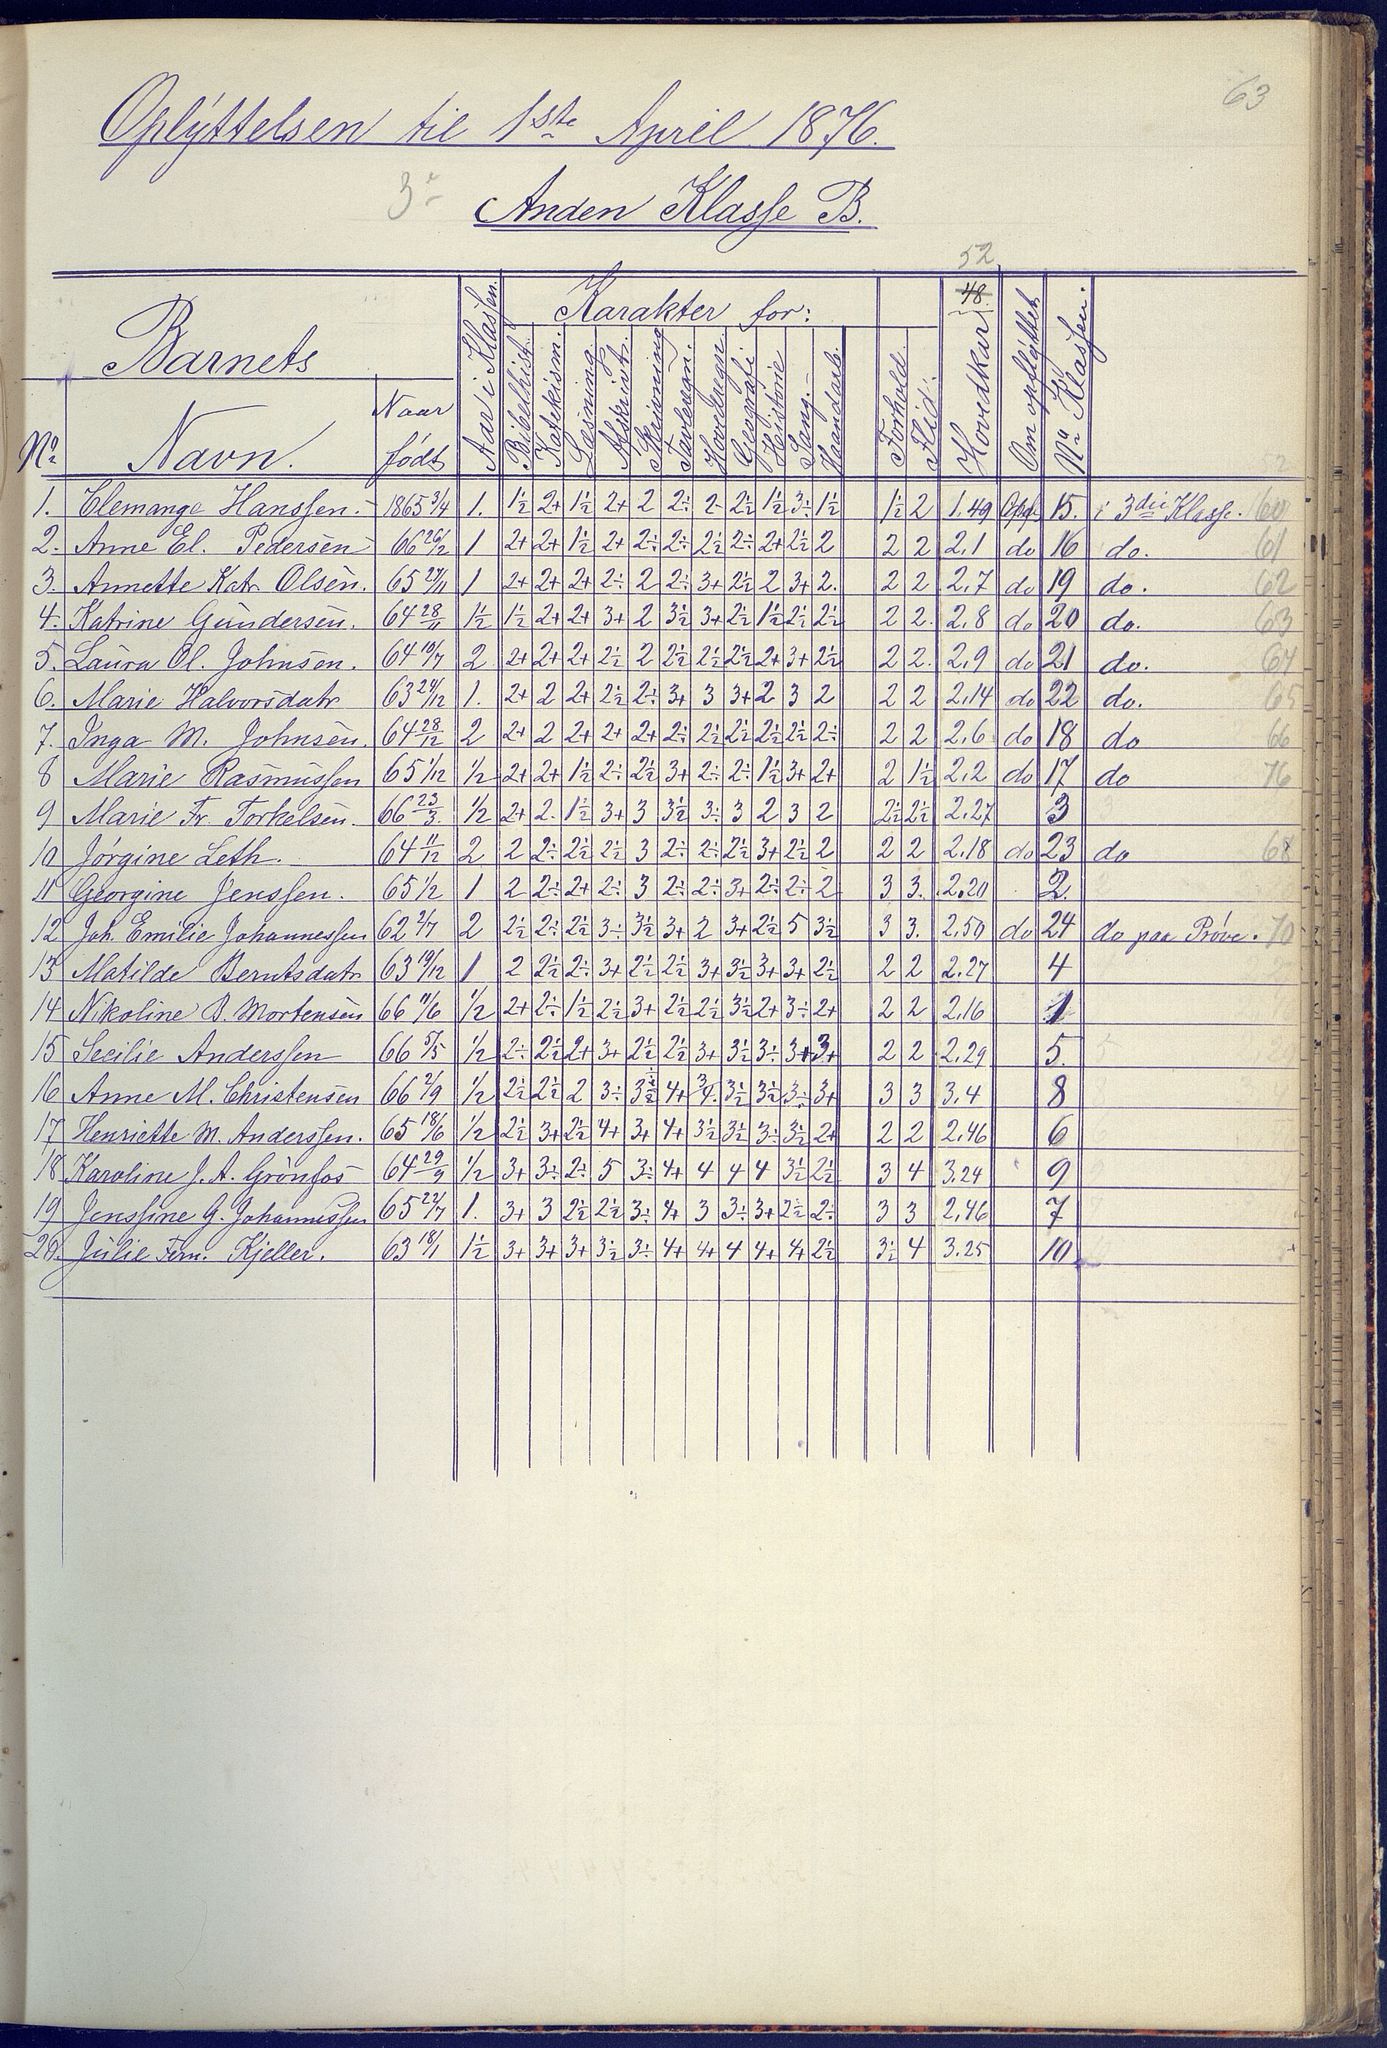 63
Oplyttelsen til 1ste April 1876.
3e
Anden Klasse B.
52
48.
Barnets
No
Navn.
Naar født
Aar i Klassen.
Karakter for:
Bibelhist.
Katekism.
Læsning
Afskrivt.
Skrivning
Tavleregn.
Hovedregn.
Geografi
Historie
Sang.
Haandarb.
Forhold.
Flid.
Hovedkar
Om oplyttet
No i Klassen.
1. Clemange Hanssen. 1865 3/4 1. 1½ 2+ 1½ 2+ 2 2÷ 2- 2½ 1½ 3÷ 1½ 1½ 2 1.49 Opfl 15. i 3die Klasse. 60
2. Anne El. Pedersen 66 26/2 1 2+ 2+ 1½ 2+ 2÷ 2÷ 2½ 2÷ 2+ 2½ 2 2 2 2.1 do 16 do. 61
3. Annette Katr. Olsen. 65 27/11 1 2+ 2+ 2+ 2÷ 2 2÷ 3+ 2½ 2 3+ 2. 2 2 2.7 do 19 do. 62
4. Katrine Gundersen. 64 28/11 1½ 1½ 2+ 2+ 3+ 2 3½ 3+ 2½ 1½ 2½ 2½ 2 2. 2.8 do 20 do. 63
5. Laura Ol. Johnsen. 64 19/7 2 2+ 2+ 2+ 2½ 2 2½ 2½ 2½ 2+ 3+ 2½ 2 2. 2.9 do 21 do. 64
6. Marie Halvorsdatr 63 24/12 1. 2+ 2 2+ 2½ 2÷ 3+ 3 3+ 2 3 2 2 2 2.14 do 22 do. 65
7. Inga M. Johnsen. 64 28/12 2 2+ 2 2+ 2+ 2+ 2÷ 2½ 2½ 2½ 2½ 2÷ 2 2 2.6 do 18 do 66
8 Marie Rasmussen 65 1/12 1/2 2+ 2+ 1½ 2÷ 2½ 3+ 2÷ 2÷ 1½ 3+ 2+ 2 1½ 2.2 do 17 do 76
9 Marie Fr. Torkelsen. 66 23/3 1/2 2+ 2. 1½ 3+ 3 3½ 3÷ 3 2 3 2 2½ 2½ 2.27 3
10 Jørgine Leth. 64 11/12 2 2 2÷ 2½ 2½ 3 2÷ 2÷ 2½ 3+ 2½ 2 2 2 2.18 do 23 do 68
11 Georgine Jenssen. 65 1/2 1 2 2÷ 2+ 2÷ 3 2÷ 2÷ 3+ 2÷ 2÷ 2 3 3. 2.20 2.
12 Joh. Emilie Johannessen 62 2/7 2 2½ 2÷ 2½ 3÷ 3½ 3+ 2 3+ 2½ 5 3½ 3 3. 2.50 do 24 do paa Prøve. 70
13 Matilde Berntsdatr 63 19/12 1 2 2½ 2÷ 3+ 2½ 2½ 3+ 3½ 3+ 3+ 2½ 2 2 2.27 4
14 Nikoline B. Mortensen 66 11/6 1/2 2+ 2÷ 1½ 2½ 3+ 2½ 2½ 3½ 2+ 3÷ 2+ 2 2 2.16 1
15 Secilie Anderssen 66 5/5 1/2 2÷ 2½ 2+ 3+ 2½ 2½ 3+ 3½ 3÷ 3+ 3+ 2 2 2.29 5.
16 Anne M. Christensen 66 2/9 1/2 2½ 2½ 2 3÷ 3½ 4+ 3½ 3½ 3÷ 3+ 3 3 3.4 8
17 Henriette M. Anderssen. 65 18/6 1/2 2½ 3+ 2½ 4+ 3+ 4+ 3½ 3½ 3÷ 3½ 2+ 2 2 2.46 6
18 Karoline J. A. Grönfos 64 29/9 1/2 3+ 3÷ 2÷ 5 3÷ 4+ 4 4 4 3½ 2½ 3 4 3.24 9
19 Jenssine G. Johannessen 65 22/7 1. 3+ 3 2½ 2½ 3÷ 4+ 3 3÷ 3+ 2½ 2÷ 3 3 2.46 7
20. Julie Fern. Kjeller. 63 18/1 1½ 3+ 3+ 3+ 3½ 3÷ 4+ 4+ 4 4+ 4+ 2½ 3½ 4 3.25 10